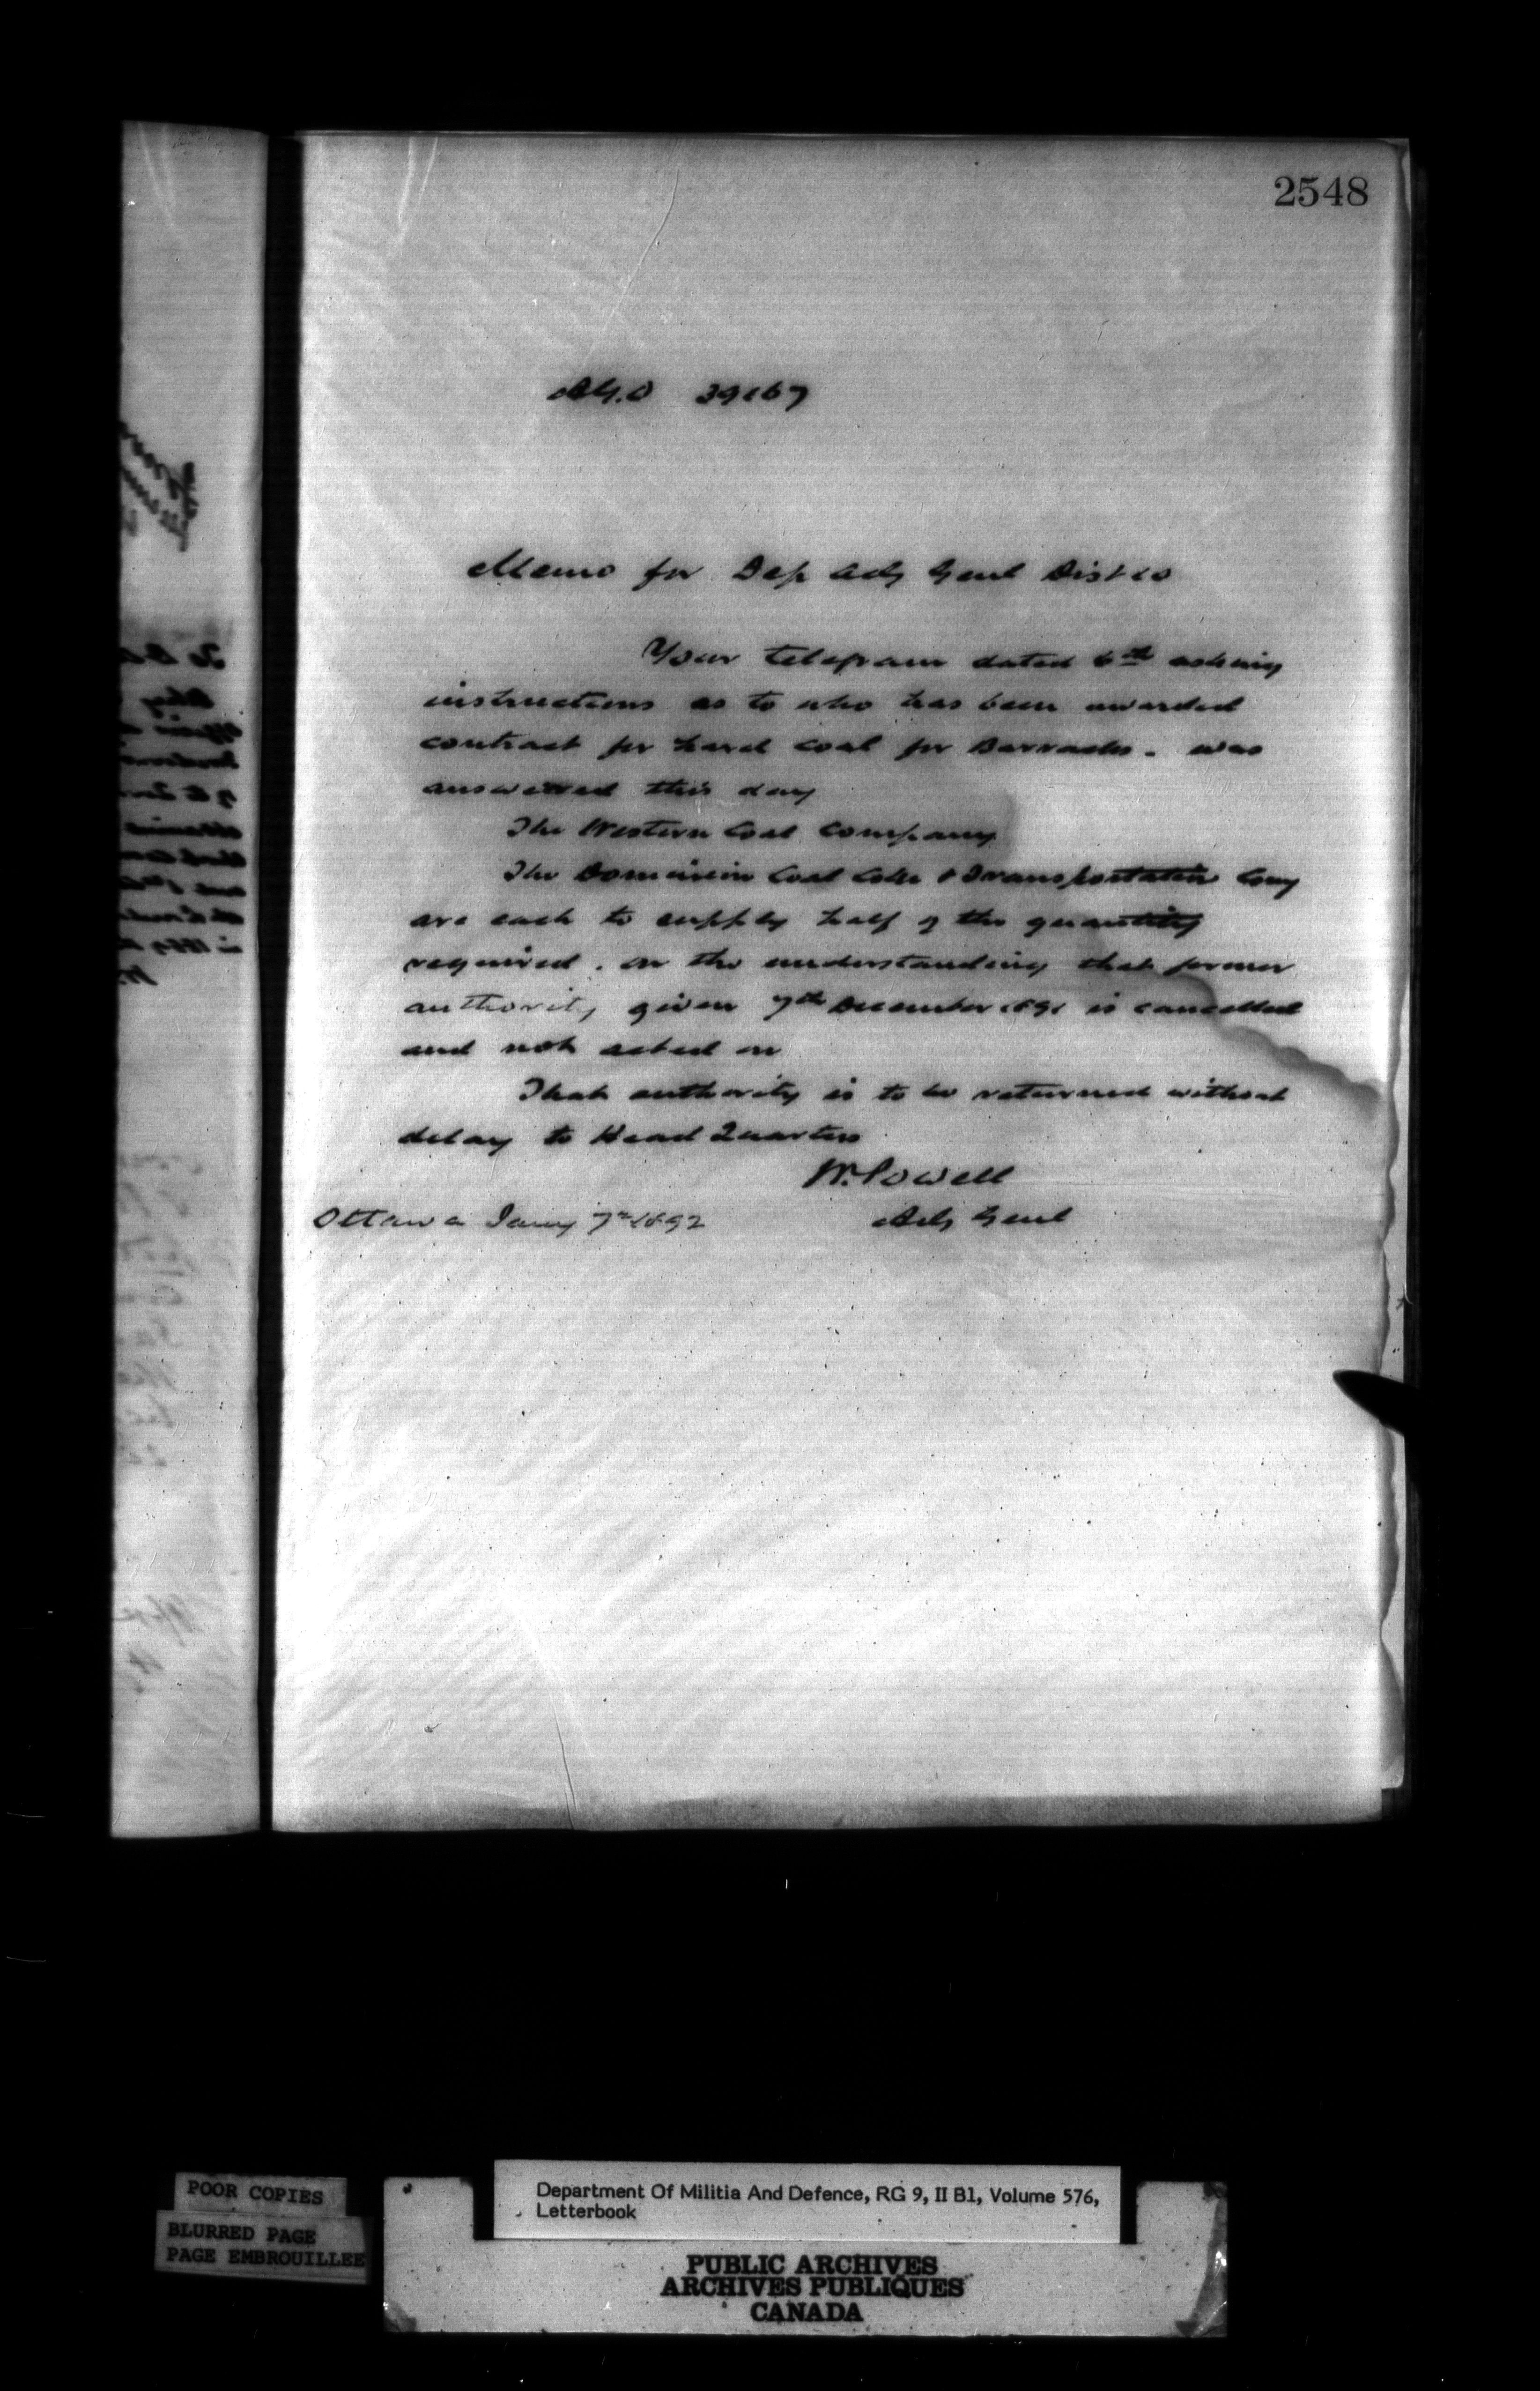 2548
A.G.O 39167
Memo for Dep Adj Genl Dist 10
Your telegram dated 6th asking
instructions as to who has been awarded
contract for hard coal for Barracks. was
answered this day
The Western Coal Company
The Dominion Coal Coke & Transportation Comy
are each to supply half of the quantity
required. on the understanding that former
authority given 7th December 1891 is cancelled
and not acted on
That authority is to be returned without
delay to Head Quarters
W. Powell
Adj Genl
Ottawa Jany 7th 1892
POOR COPIES
BLURRED PAGE
PAGE EMBROUILLEE
Department Of Militia And Defence, RG 9, II B1, Volume 576,
Letterbook
PUBLIC ARCHIVES
ARCHIVES PUBLIQUES
CANADA